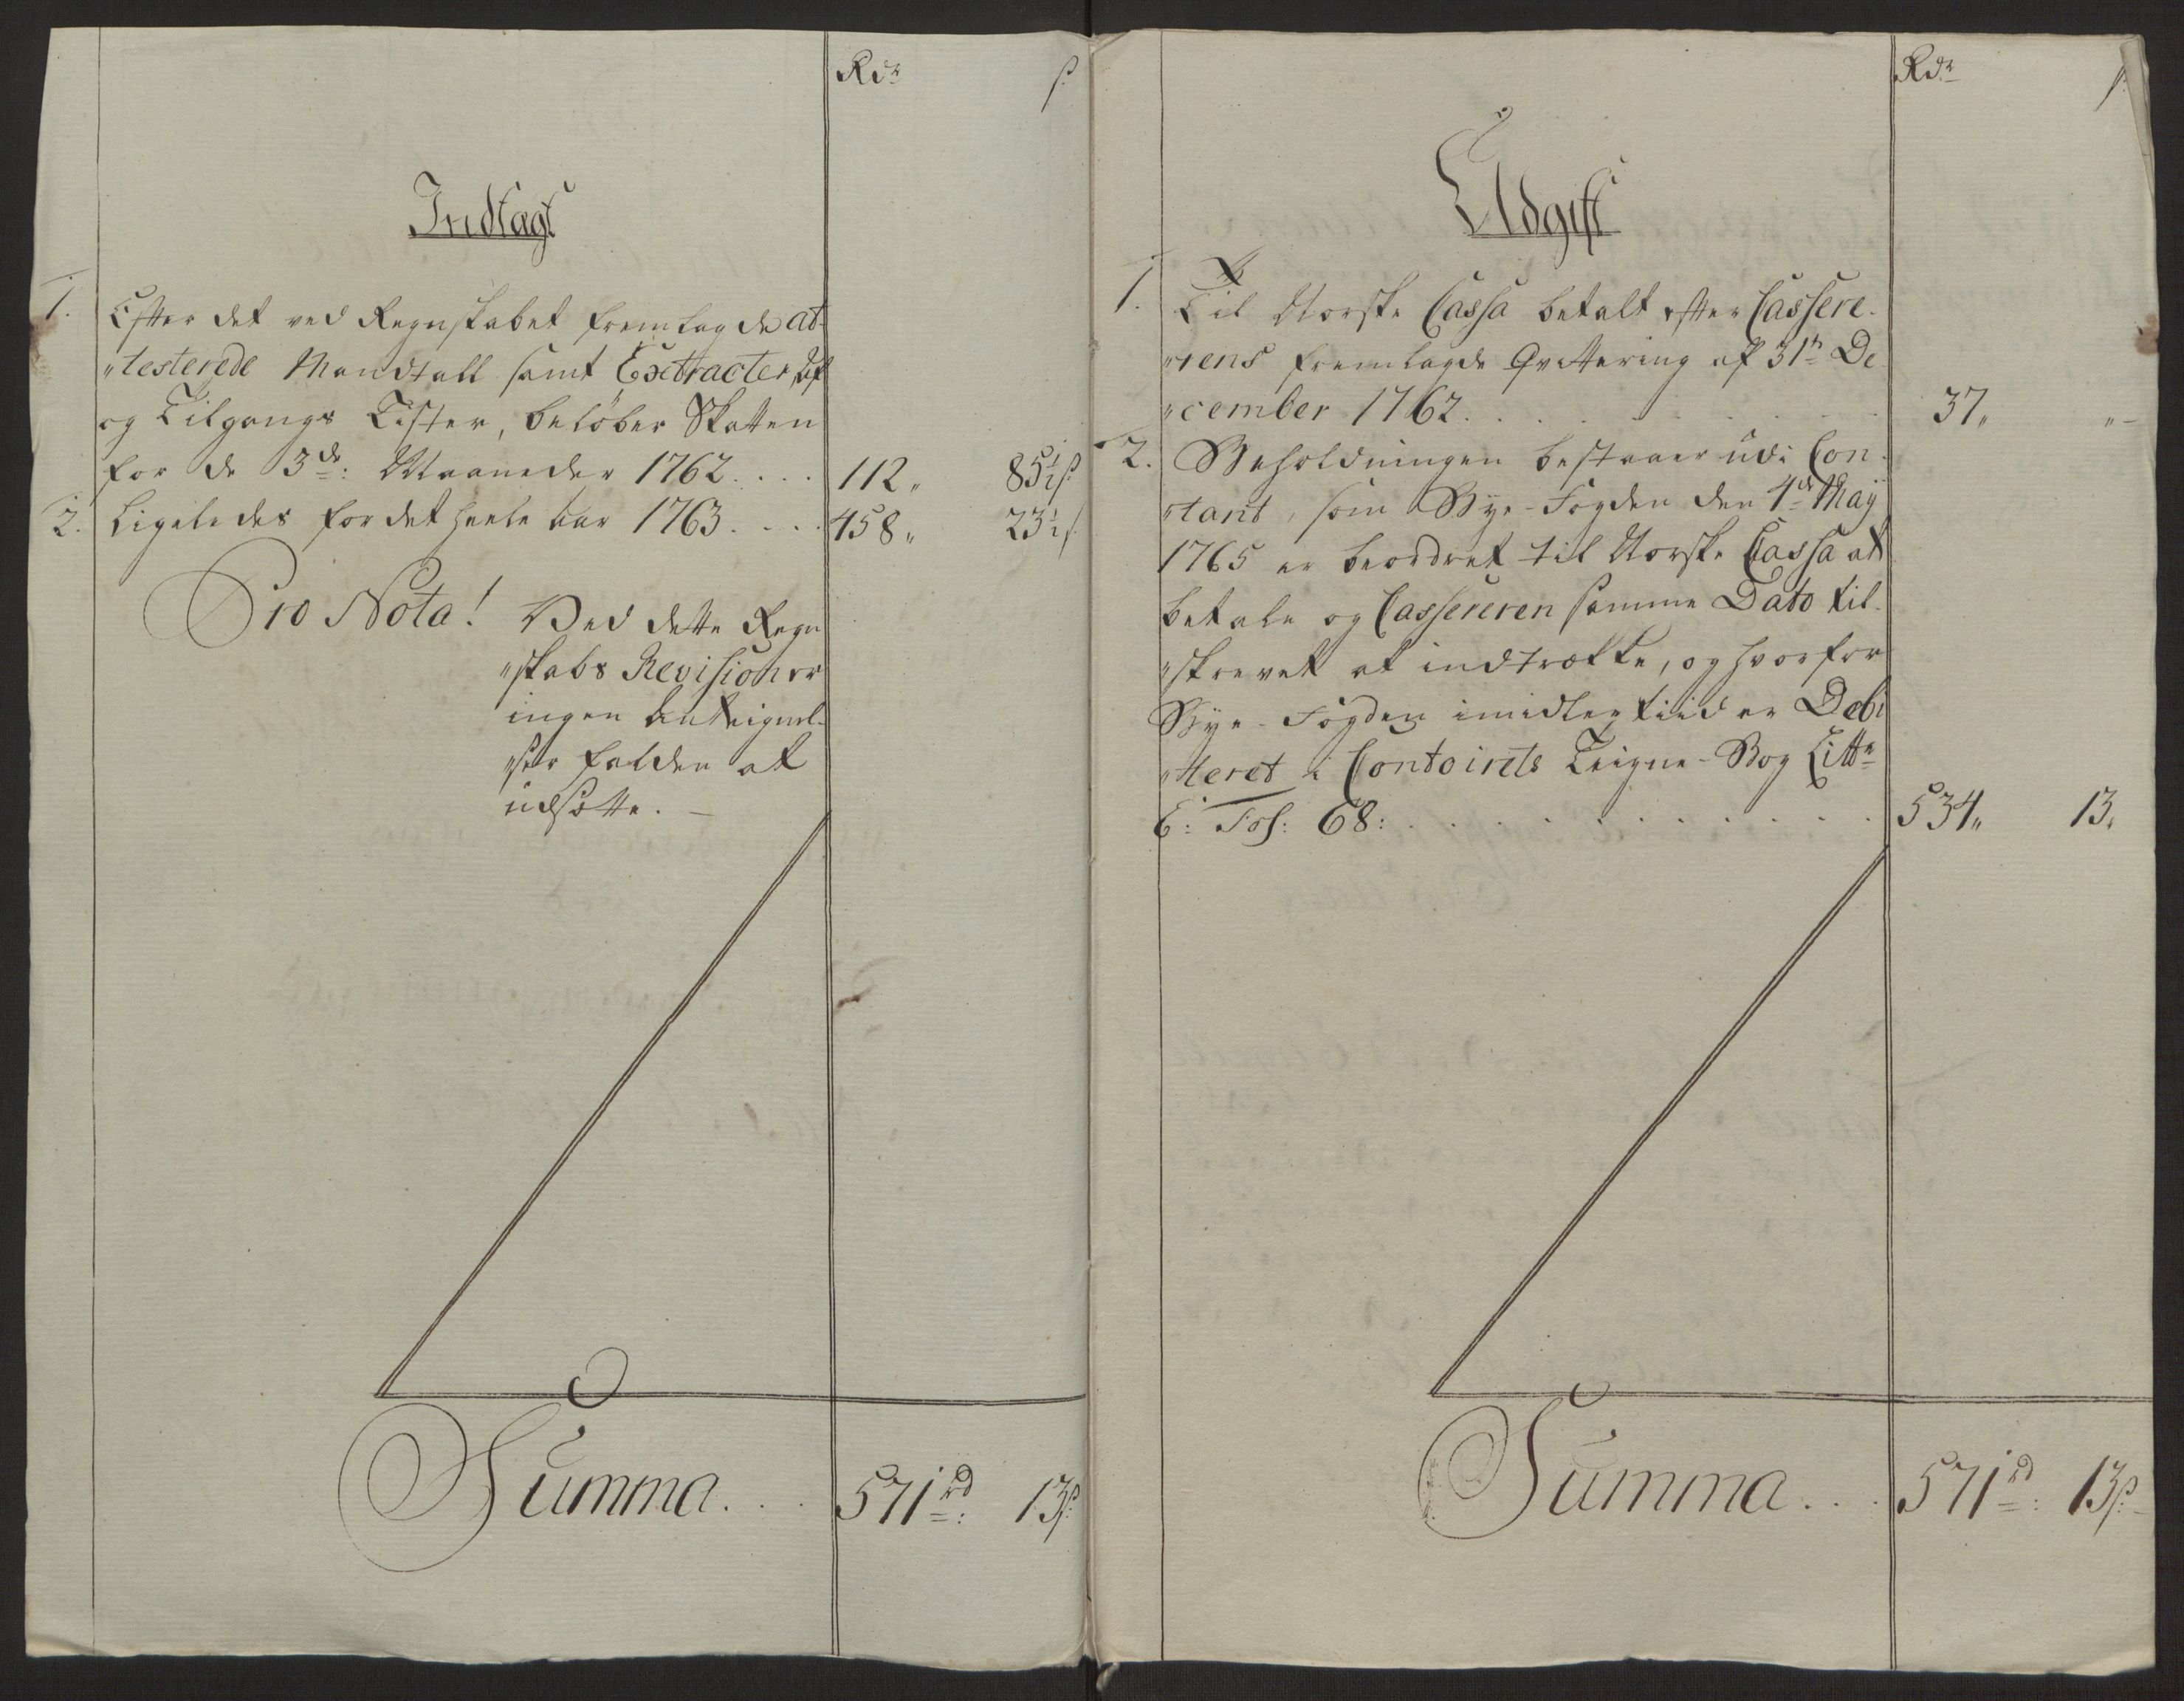 Rdr ß
Indtagt
1. Efter det ved Regnskabet fremlagde at-
"testerede Mandtall samt Extracter, Af
og Tilgangs Lister, beløber Skatten
for de 3de: Maaneder 1762 . . . . 112 " 85½ ß
2. Ligeledes for det heele aar 1763 . . . . 458 " 23½ ß
Pro Nota! Ved dette Regn
"skabs Revision er
ingen Anteignel-
"ser falden at
udsætte. —
Summa . . . 571 rd: 13 ß
Rdr ß
Udgift
1. Til Norske Cassa betalt efter Cassere-
"rens fremlagde Qvittering af 31te De
"cember 1762 . . . . . . . . 37 " " -
2. Beholdningen bestaaer udi Con-
"tant, som Bye-Fogden den 4de May
1765 er beordret til Norske Cassa at
betale og Casserer en samme Dato til-
"skrevet at indtrække, og hvorfor
Bye-Fogden imidlertiid er Debi
"teret i Contoirets Teigne-Bog Litte
E: Fol: 68: . . . . . . . . . 534 " 13 "
Summa . . . 571 rd: 13 ß